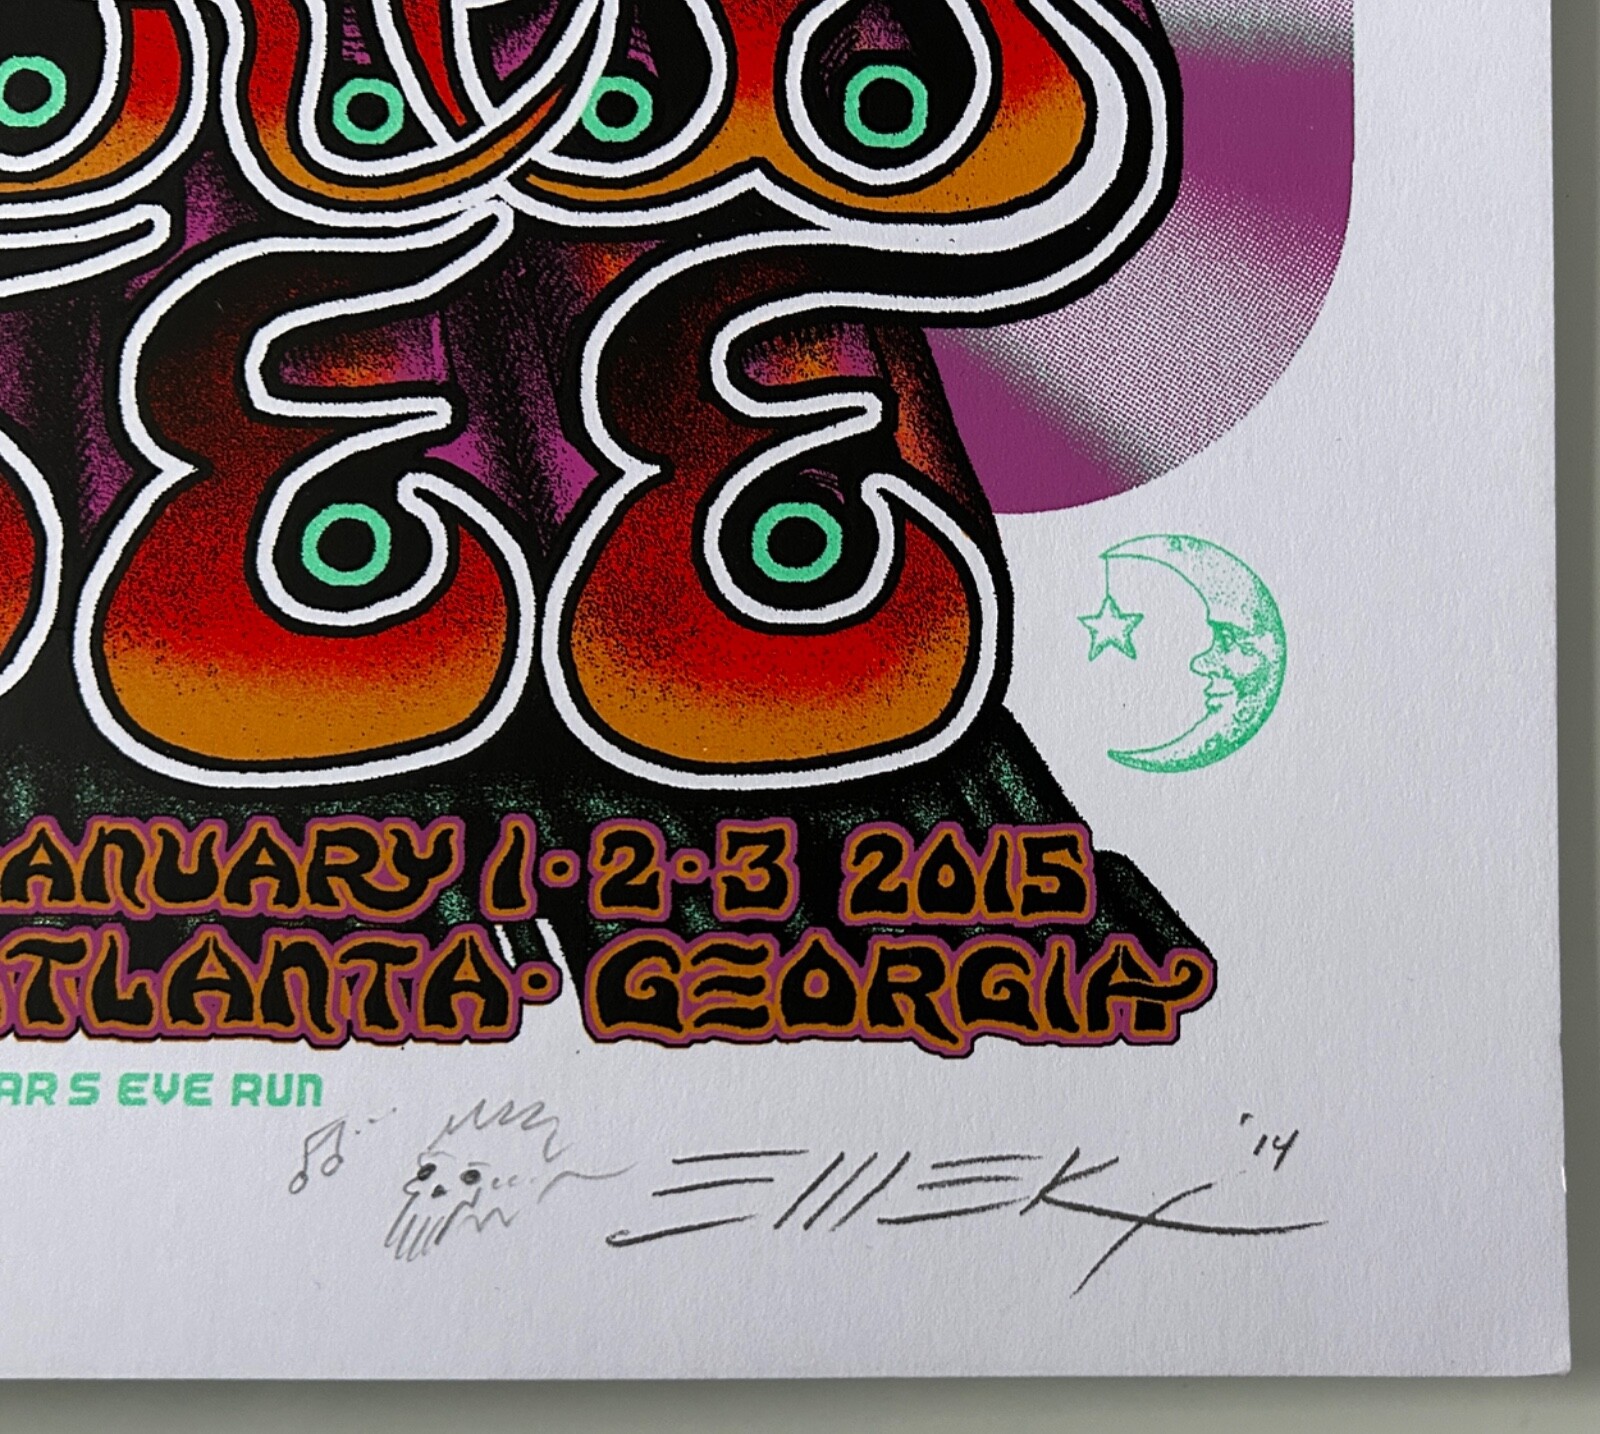 EE
ANUARY 1·2·3 2015
TLANTA· GEORGIA
AR S EVE RUN
EMEK '14